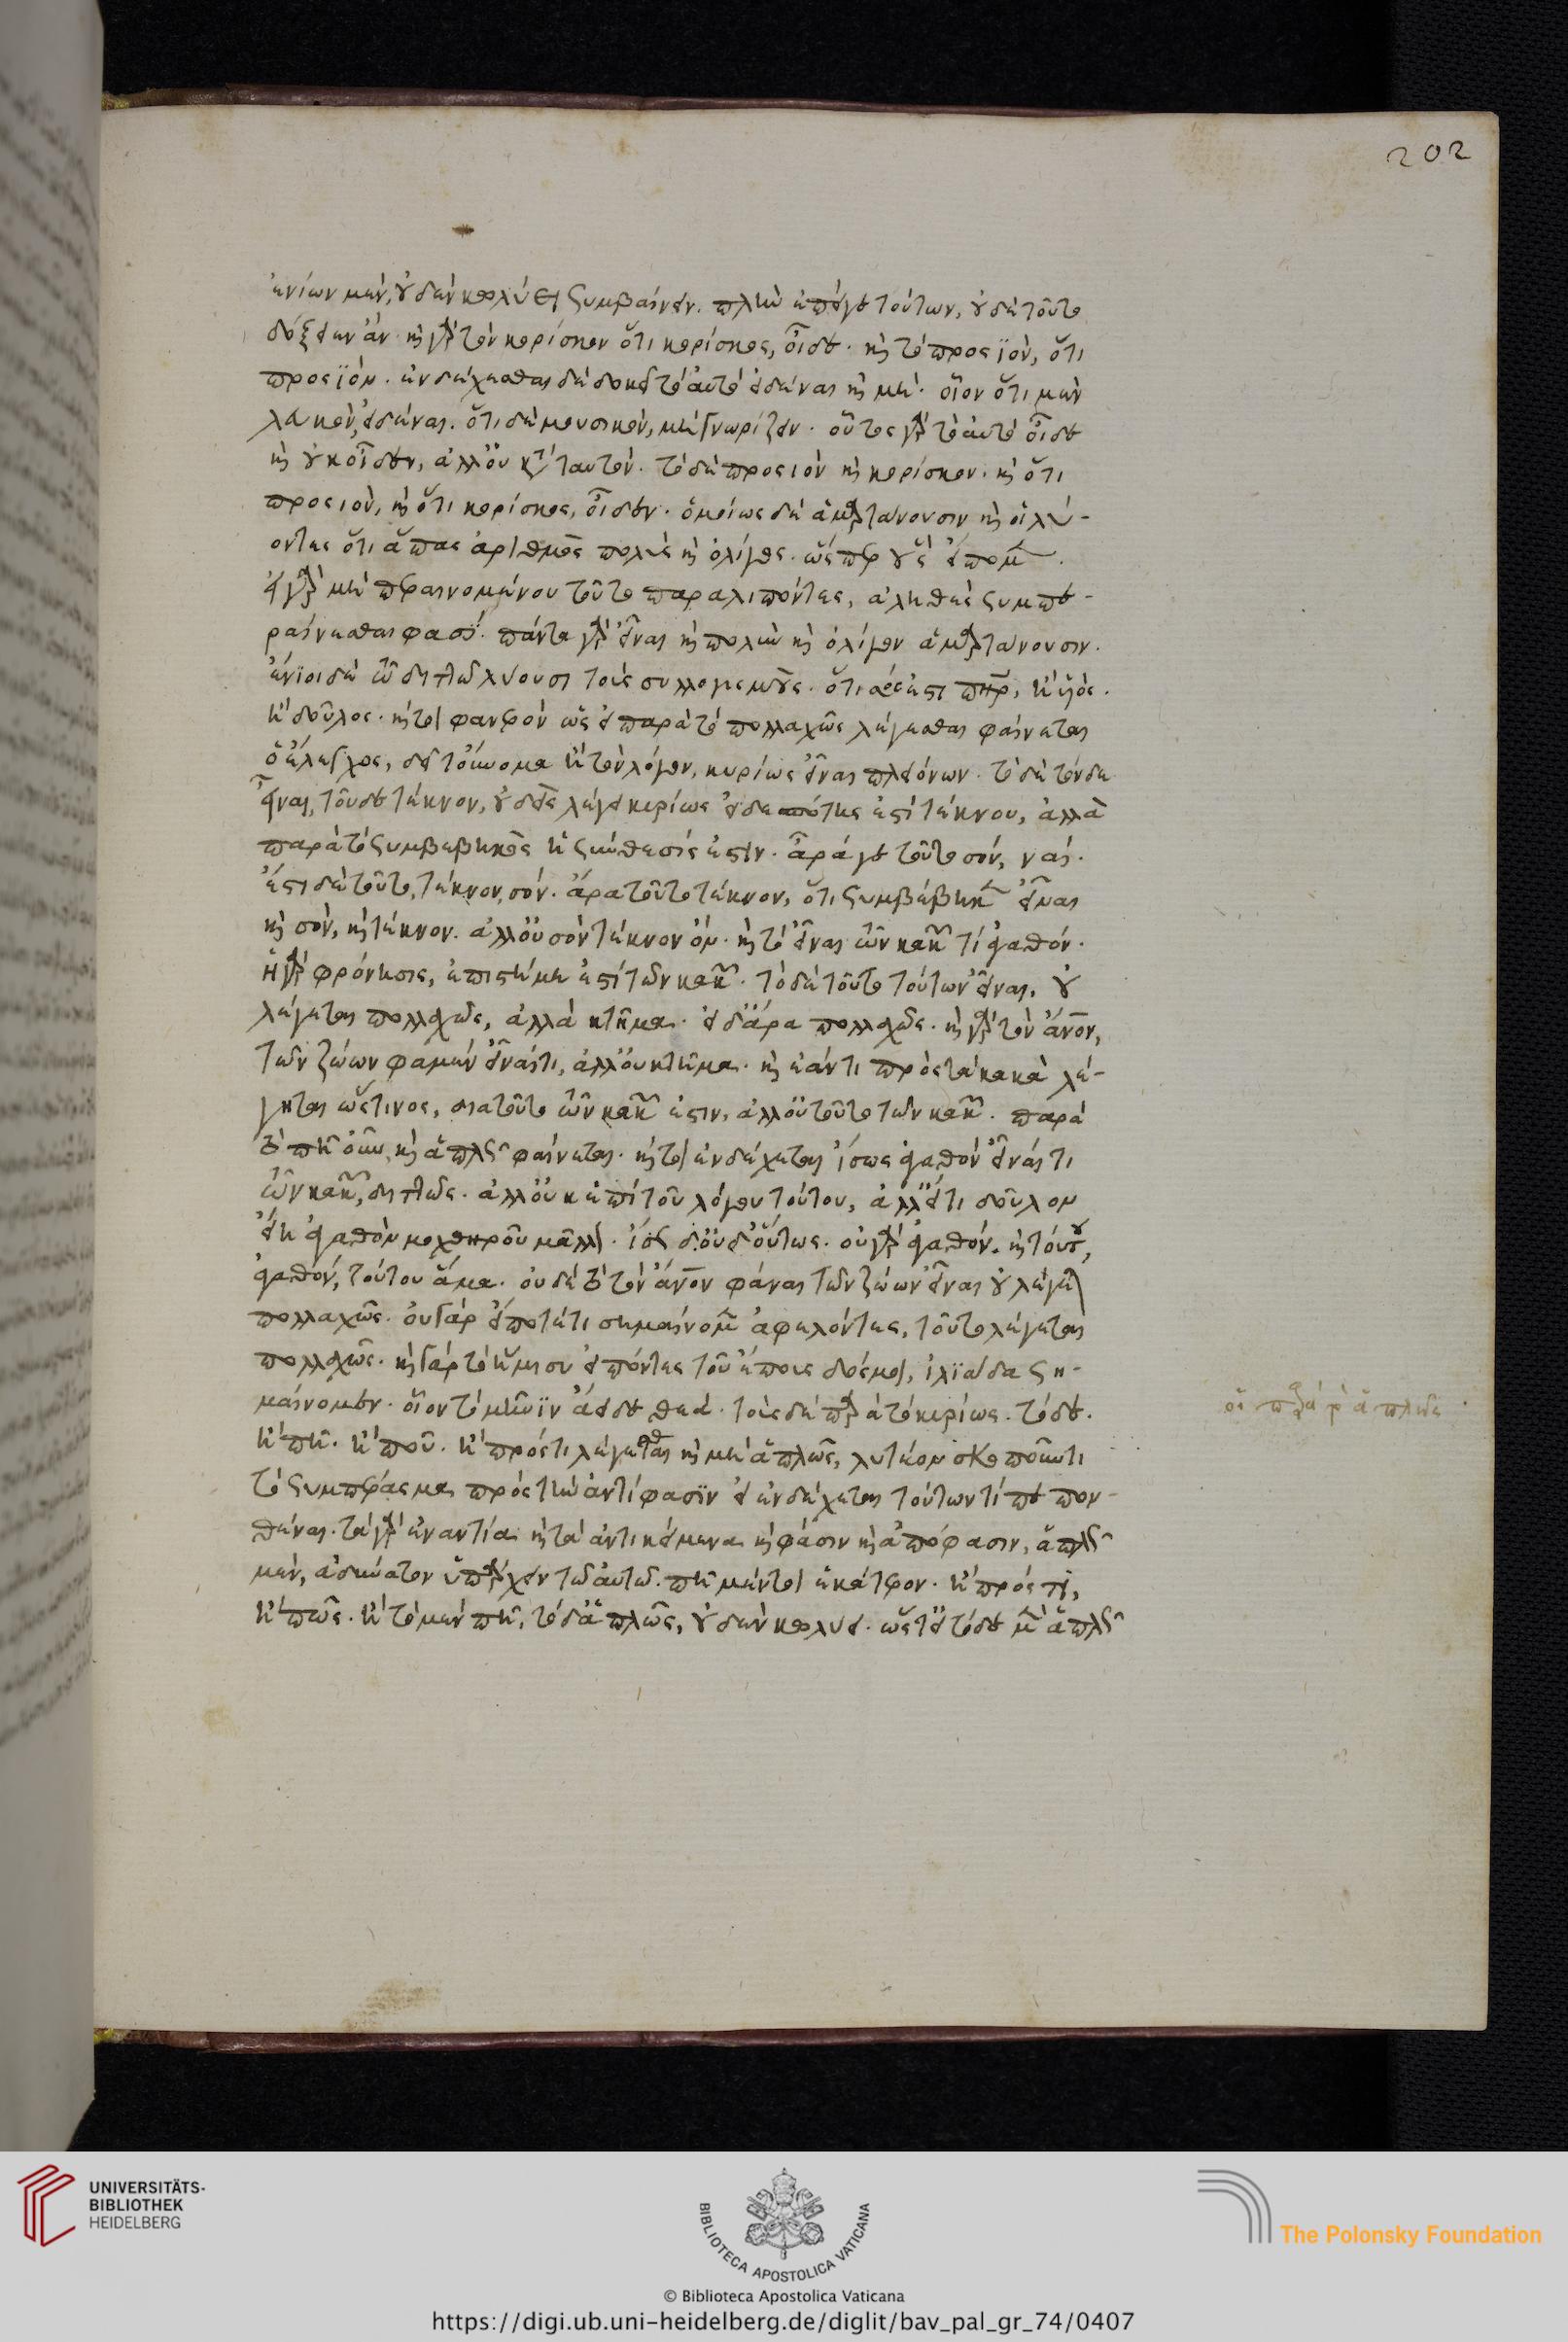 202
ἐνίων μὲν, οὐδὲν κωλύει συμβαίνειν. πλὴν ἐπί γε τούτων, οὐδὲ τοῦτο
δόξειεν ἄν· καὶ γὰρ τὸν κορίσκον ὅτι κορίσκος, οἶδε· καὶ τὸ προσϊὸν, ὅτι
προσϊόν. ἐνδέχεσθαι δὲ δοκεῖ τὸ αὐτὸ εἰδέναι καὶ μή· οἷον ὅτι μὲν
λευκὸν, εἰδέναι. ὅτι δὲ μουσικὸν, μὴ γνωρίζειν· οὕτως γὰρ τὸ αὐτὸ οἶδε
καὶ οὐκ οἶδεν, ἀλλ' οὐ κατὰ ταυτόν. τὸ δὲ προσιὸν καὶ κορίσκον. καὶ ὅτι
προσιὸν, καὶ ὅτι κορίσκος, οἶδεν. ὁμοίως δὲ ἁμαρτάνουσιν καὶ οἱ λύ-
οντες ὅτι ἅπας ἀριθμὸς πολὺς καὶ ὀλίγος. ὥσπερ οὓς εἴπομεν.
εἰ γὰρ μὴ περαινομένου τοῦτο παραλιπόντες, ἀληθὲς συμπε-
ράνεσθαι φασΐ. πάντα γὰρ εἶναι καὶ πολὺν καὶ ὀλίγον ἁμαρτάνουσιν.
ἔνϊοι δὲ τῶ διττῶ λύουσι τοὺς συλλογισμούς. ὅτι σός ἐστι πατὴρ, ἢ υἱός.
ἢ δοῦλος. καίτοι φανερὸν ὡς εἰ παρὰ τὸ πολλαχῶς λέγεσθαι φαίνεται
ὁ ἔλεγχος, δεῖ τοὔνομα ἢ τὸν λόγον, κυρίως εἶναι πλειόνων. τὸ δὲ τόνδε
εἶναι, τοῦδε τέκνον, οὐδεὶς λέγει κυρίως εἰ δεσπότης ἐστὶ τέκνου, ἀλλὰ
παρὰ τὸ συμβεβηκὸς ἡ σύνθεσίς ἐστιν. ἆρά γε τοῦτο σόν, ναί.
ἔστι δὲ τοῦτο, τέκνον, σόν. ἄρα τοῦτο τέκνον, ὅτι συμβέβηκεν εἶναι
καὶ σὸν, καὶ τέκνον. ἀλλ' οὐ σὸν τέκνον ὄν. καὶ τὸ εἶναι τῶν κακῶν τί ἀγαθόν.
ἡ γὰρ φρόνησις, ἐπιστήμη ἐστὶ τῶν κακῶν. τὸ δὲ τοῦτο τούτων εἶναι, οὐ
λέγεται πολλαχῶς, ἀλλὰ κτῆμα. εἰ δ' ἄρα πολλαχῶς. καὶ γὰρ τὸν ἄνον,
τῶν ζώων φαμὲν εἶναί τι, ἀλλ' οὐ κτῆμα. καὶ ἐάν τι πρὸς τὰ κακὰ λέ-
γηται ὥς τινος, διατοῦτο τῶν κακῶν ἐστιν, ἀλλ' οὐ τοῦτο τῶν κακῶν. παρὰ
τὸ πῆ οὖν καὶ ἁπλῶς φαίνεται. καίτοι ἐνδέχεται ἴσως ἀγαθὸν εἶναί τι
τῶν κακῶν, διττῶς. ἀλλ' οὐκ ἐπὶ τοῦ λόγου τούτου, ἀλλ' εἴ τι δοῦλον
εἴη ἀγαθὸν μοχθηροῦ μᾶλλον. ἴσως δ' οὐδ' οὕτως. οὐ γὰρ ἀγαθὸν. καὶ τούτου,
ἀγαθὸν, τούτου ἅμα. οὐδὲ τὸ τὸν ἄνον φάναι τῶν ζώων εἶναι οὐ λέγεται
πολλαχῶς. οὐ γάρ εἴ ποτέ τι σημαίνομεν ἀφελόντες, τοῦτο λέγεται
πολλαχῶς. καὶ γάρ τὸ ἥμισυ εἰπόντες τοῦ ἔπους δός μοι, ἰλϊάδα ση-
μαίνομεν. οἷον τὸ μῆνϊν ἄειδε θεά. τοὺς δὲ παρὰ τὸ κυρίως. τόδε.
ἢ πῆ. ἢ ποῦ. ἢ πρός τι λέγεσθαι καὶ μὴ ἁπλῶς, λυτέον σκοποῦντι
τὸ συμπέρασμα πρὸς τὴν ἀντίφασϊν εἰ ἐνδέχεται τούτων τί πεπον-
θέναι. τὰ γὰρ ἐναντία καὶ τὰ ἀντικείμενα καὶ φάσιν καὶ ἀπόφασιν, ἁπλῶς
μὲν, ἀδύνατον ὑπάρχειν τῶ αὐτῶ. πῆ μέντοι ἑκάτερον. ἢ πρός τι,
ἢ πῶς. ἢ τὸ μὲν πῆ, τὸ δ' ἁπλῶς, οὐδὲν κωλύει. ὥστ' εἰ τόδε μὲν ἁπλῶς
UNIVERSITÄTS-
BIBLIOTHEK
HEIDELBERG
BIBLIOTECA APOSTOLICA VATICANA
The Polonsky Foundation
© Biblioteca Apostolica Vaticana
https://digi.ub.uni-heidelberg.de/diglit/bav_pal_gr_74/0407